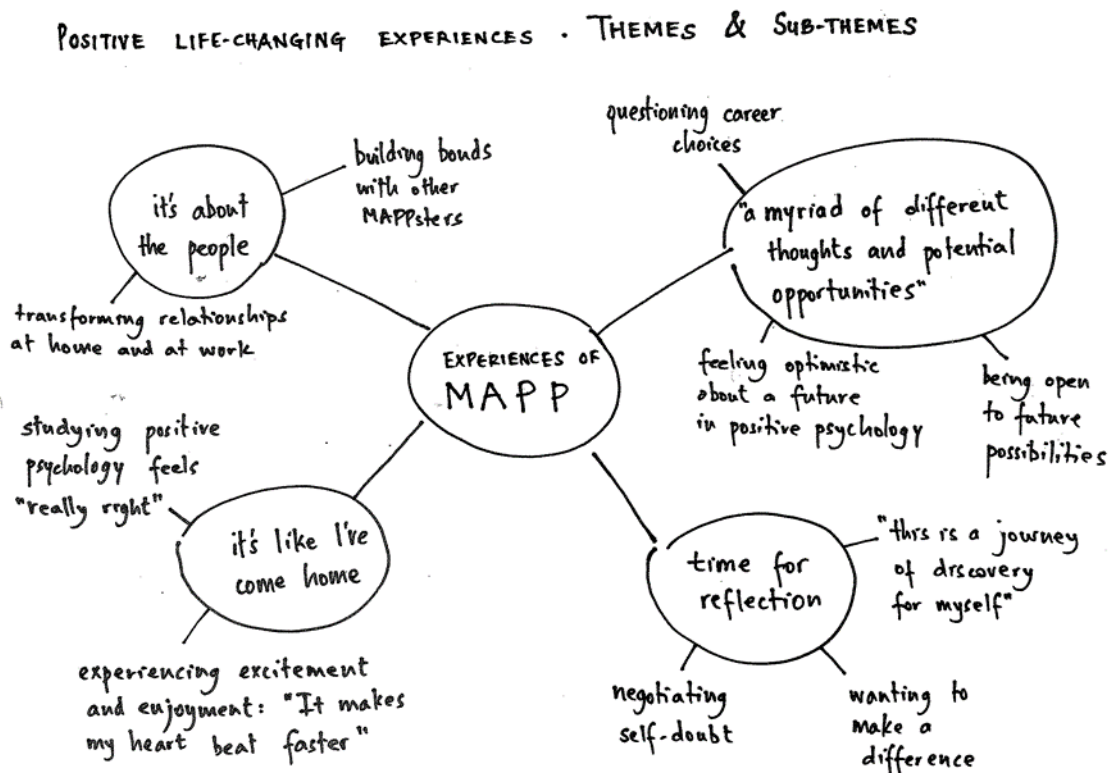 POSITIVE LIFE-CHANGING EXPERIENCES . THEMES & SUB-THEMES
it's about
the people
building bonds
with other
MAPPsters
transforming relationships
at home and at work
questioning career
choices
"a myriad of different
thoughts and potential
opportunities"
feeling optimistic
about a future
in positive psychology
being open
to future
possibilities
EXPERIENCES OF
MAPP
studying positive
psychology feels
"really right"
it's like I've
come home
experiencing excitement
and enjoyment: "It makes
my heart beat faster"
time for
reflection
"this is a journey
of discovery
for myself"
negotiating
self-doubt
wanting to
make a
difference